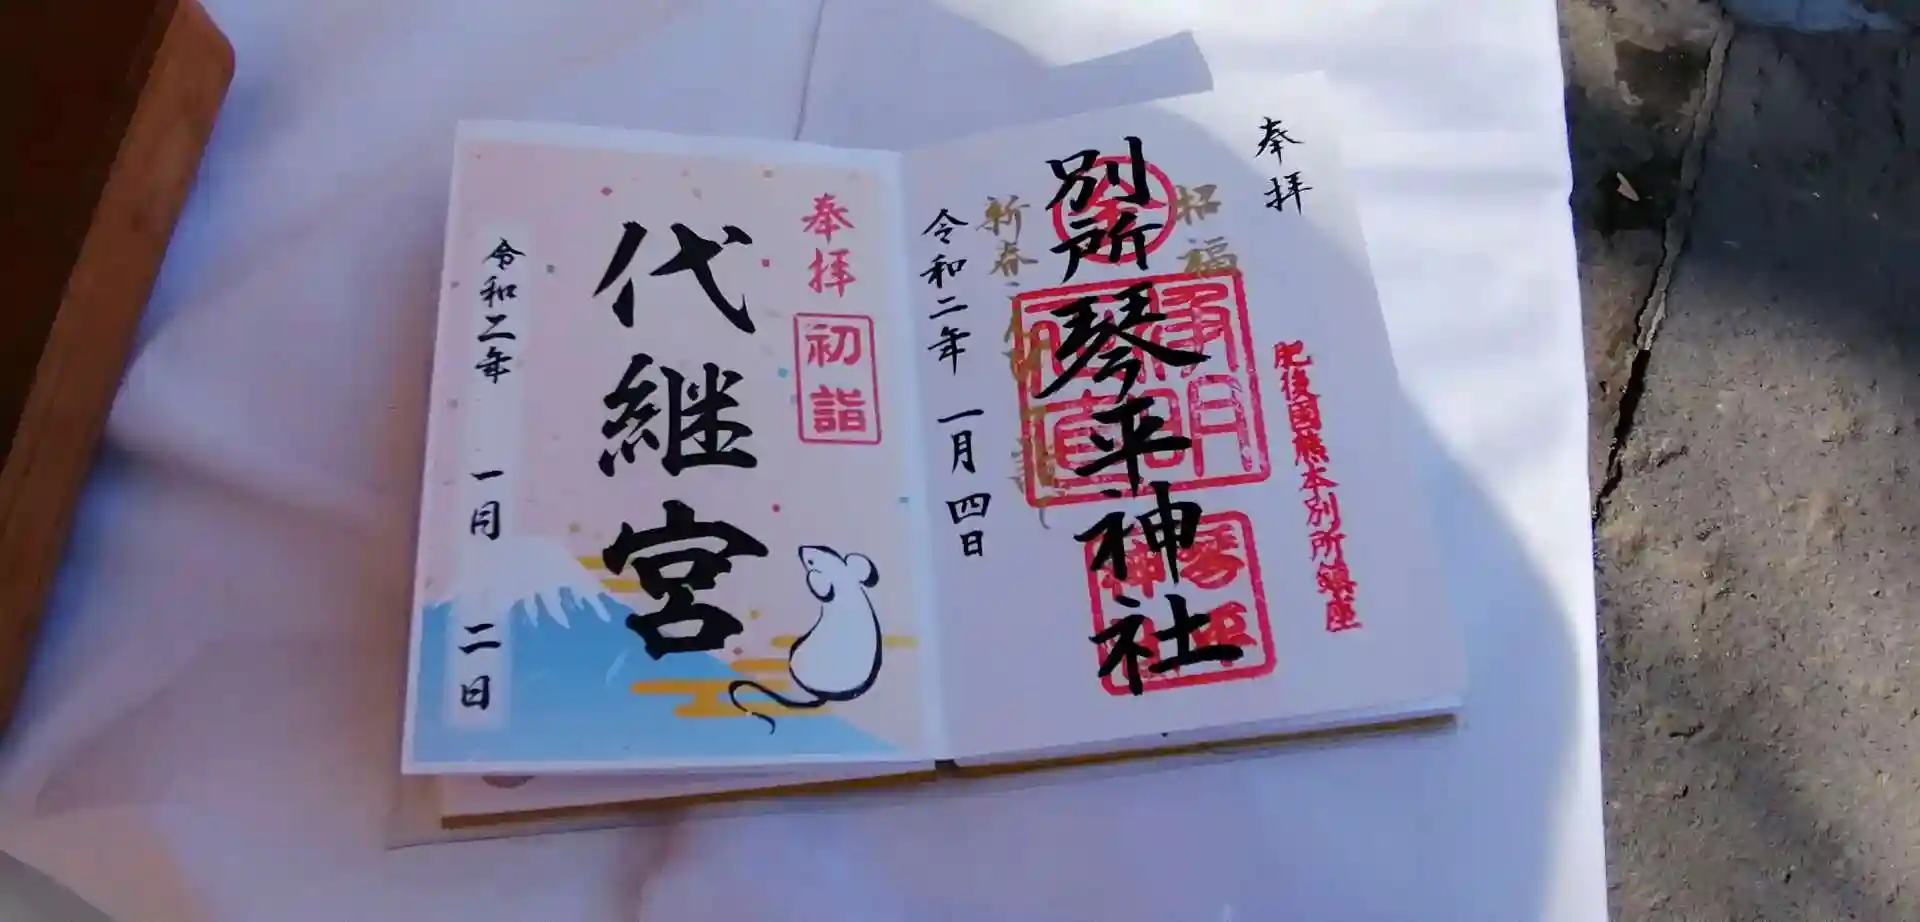 奉拝
肥後国熊本別所鎮座
招福
別所琴平神社
琴平神社
新春
令和二年 一月四日
奉拝
初詣
代継宮
令和二年 一月 二日